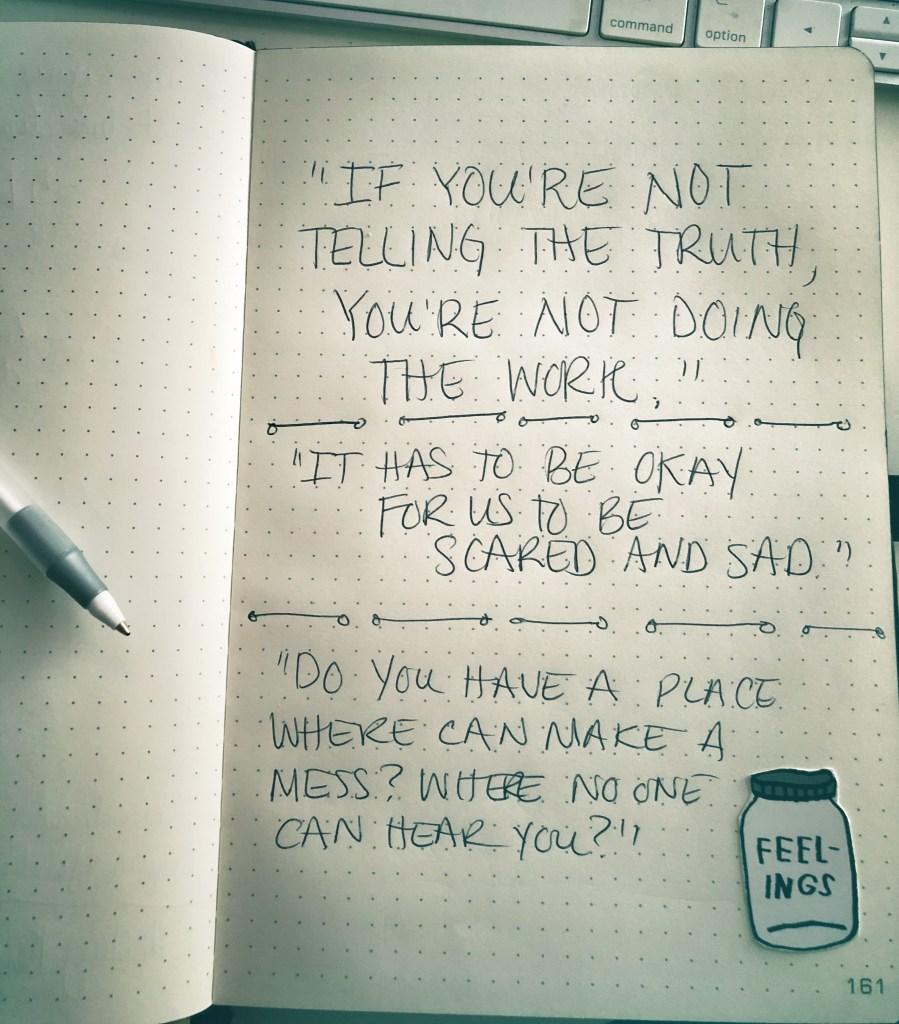 command
option
"IF YOU'RE NOT
TELLING THE TRUTH,
YOU'RE NOT DOING
THE WORK."
"IT HAS TO BE OKAY
FOR US TO BE
SCARED AND SAD."
"DO YOU HAVE A PLACE
WHERE CAN MAKE A
MESS? WHERE NO ONE
CAN HEAR YOU?"
FEEL-
INGS
161